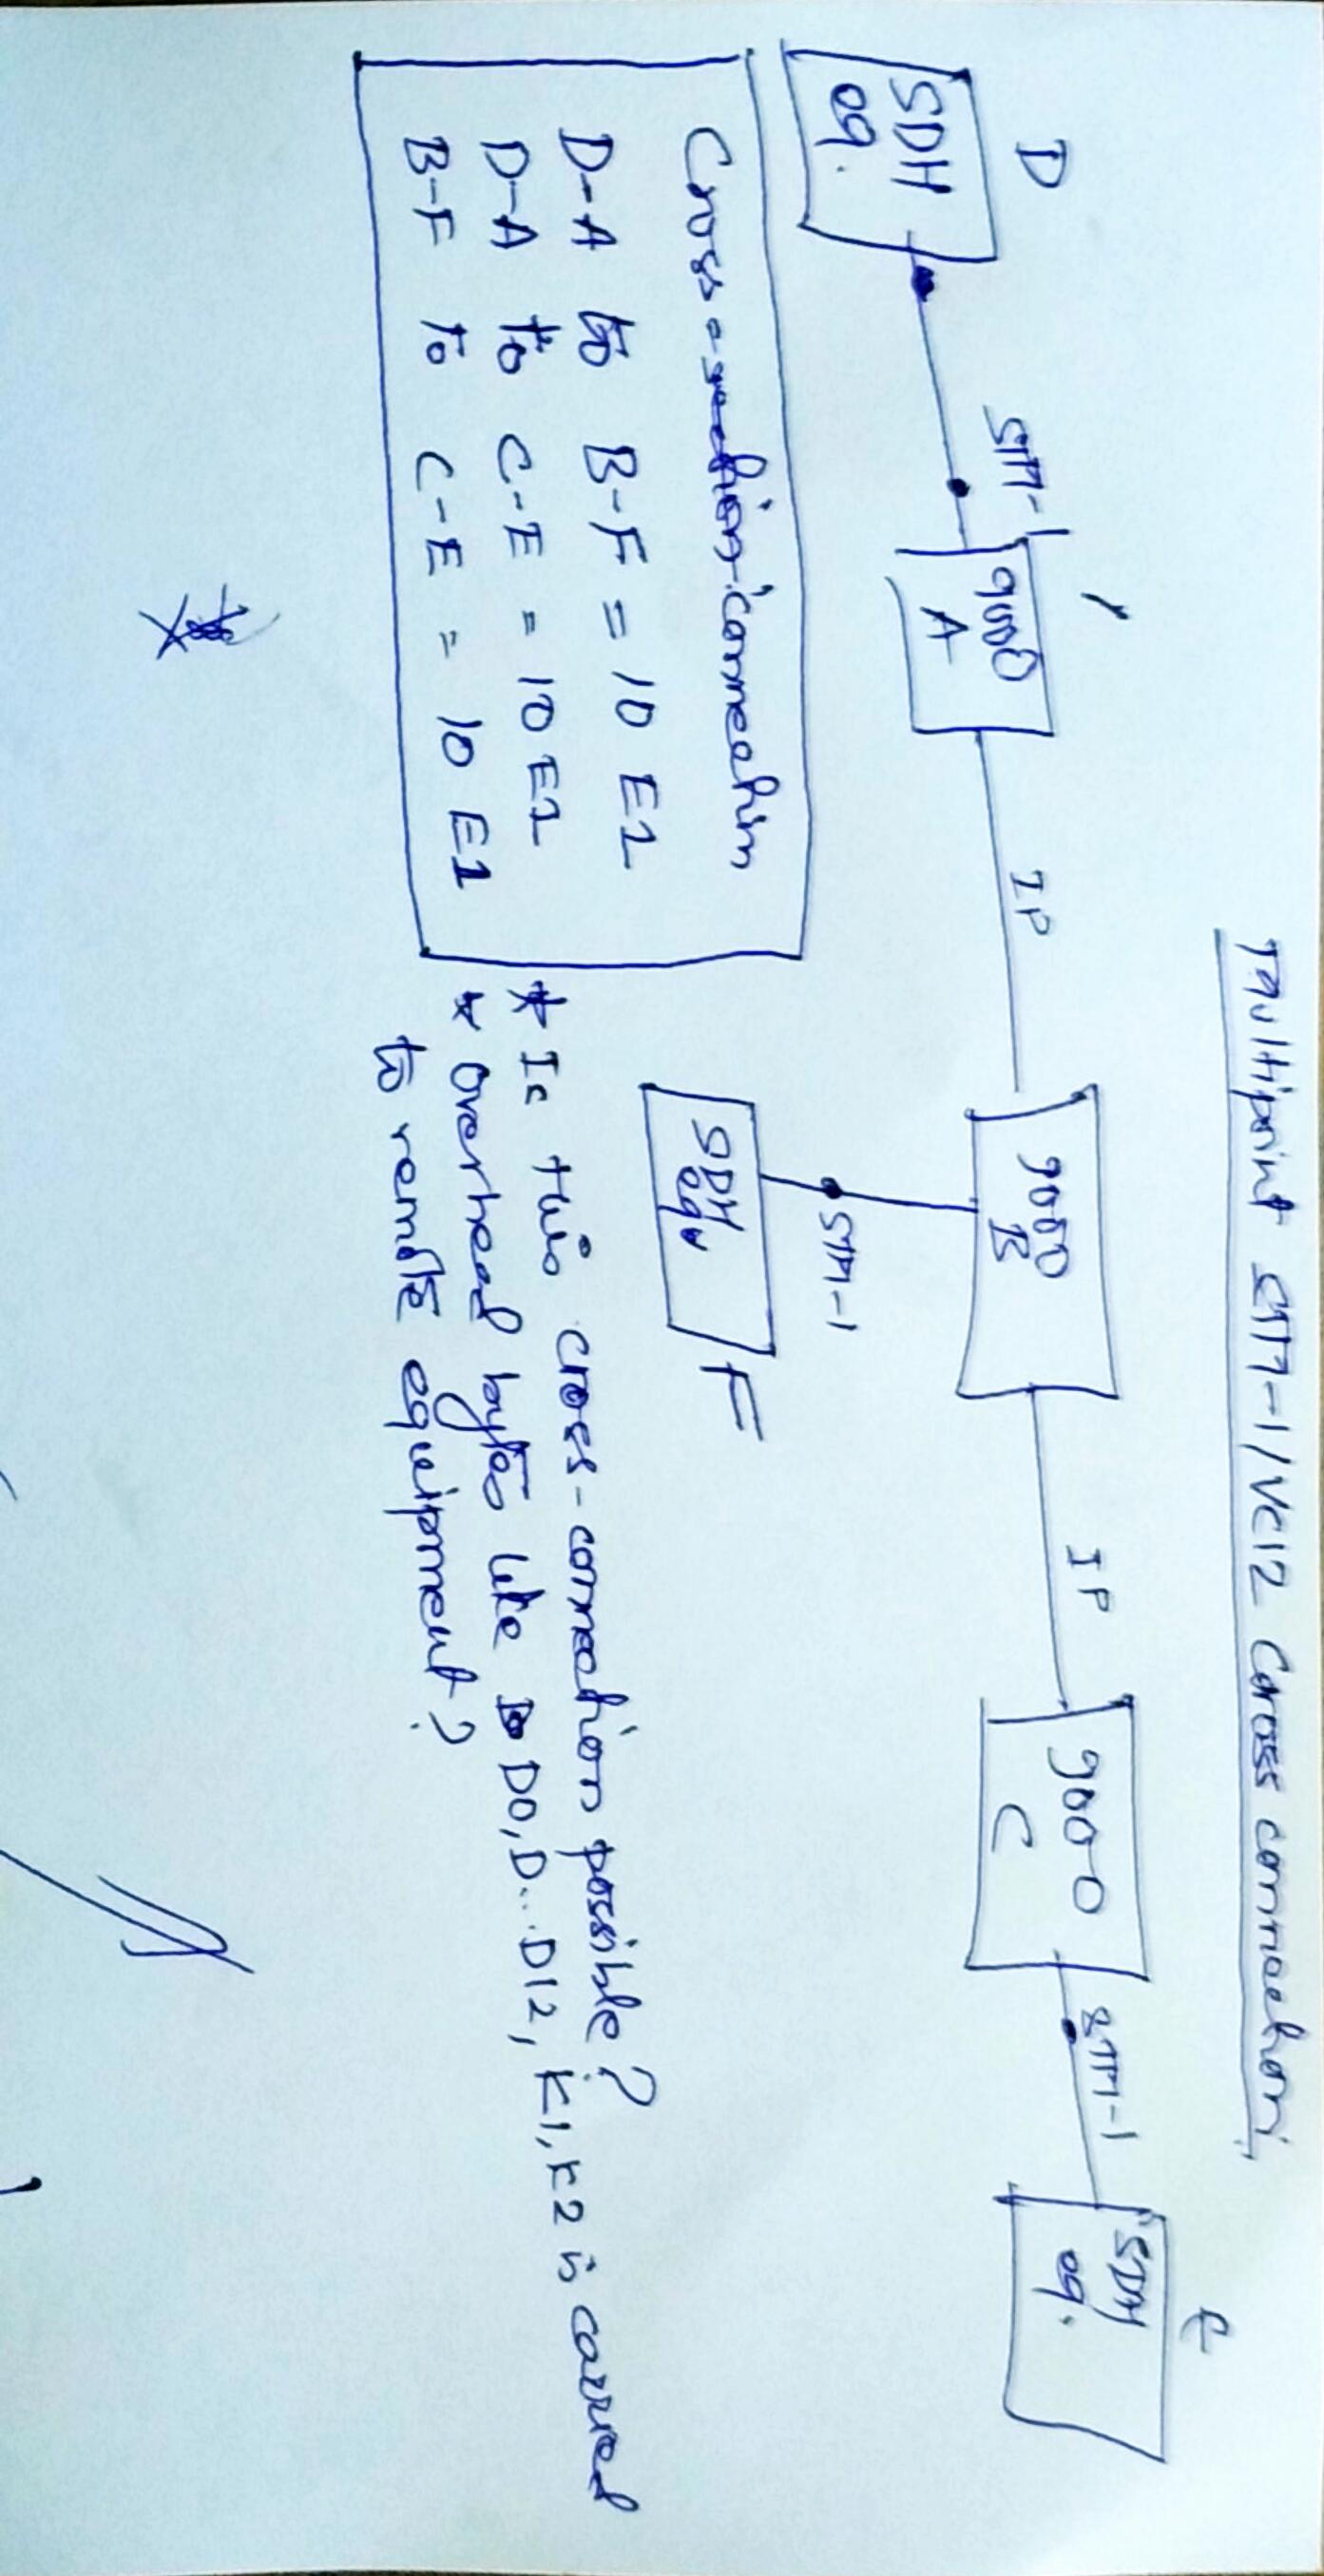 Multipoint STM-1/VC12 Cross connection
D
E
SDH
eq.
STM-1
9000
A
IP
9000
B
IP
9000
C
STM-1
SDH
eq.
STM-1
SDH
eqv
F
Cross-connection
D-A to B-F = 10 E1
D-A to C-E = 10 E1
B-F to C-E = 10 E1
* Is this cross-connection possible?
* Overhead bytes like D0, D...D12, K1, K2 is carried
to remote equipment?